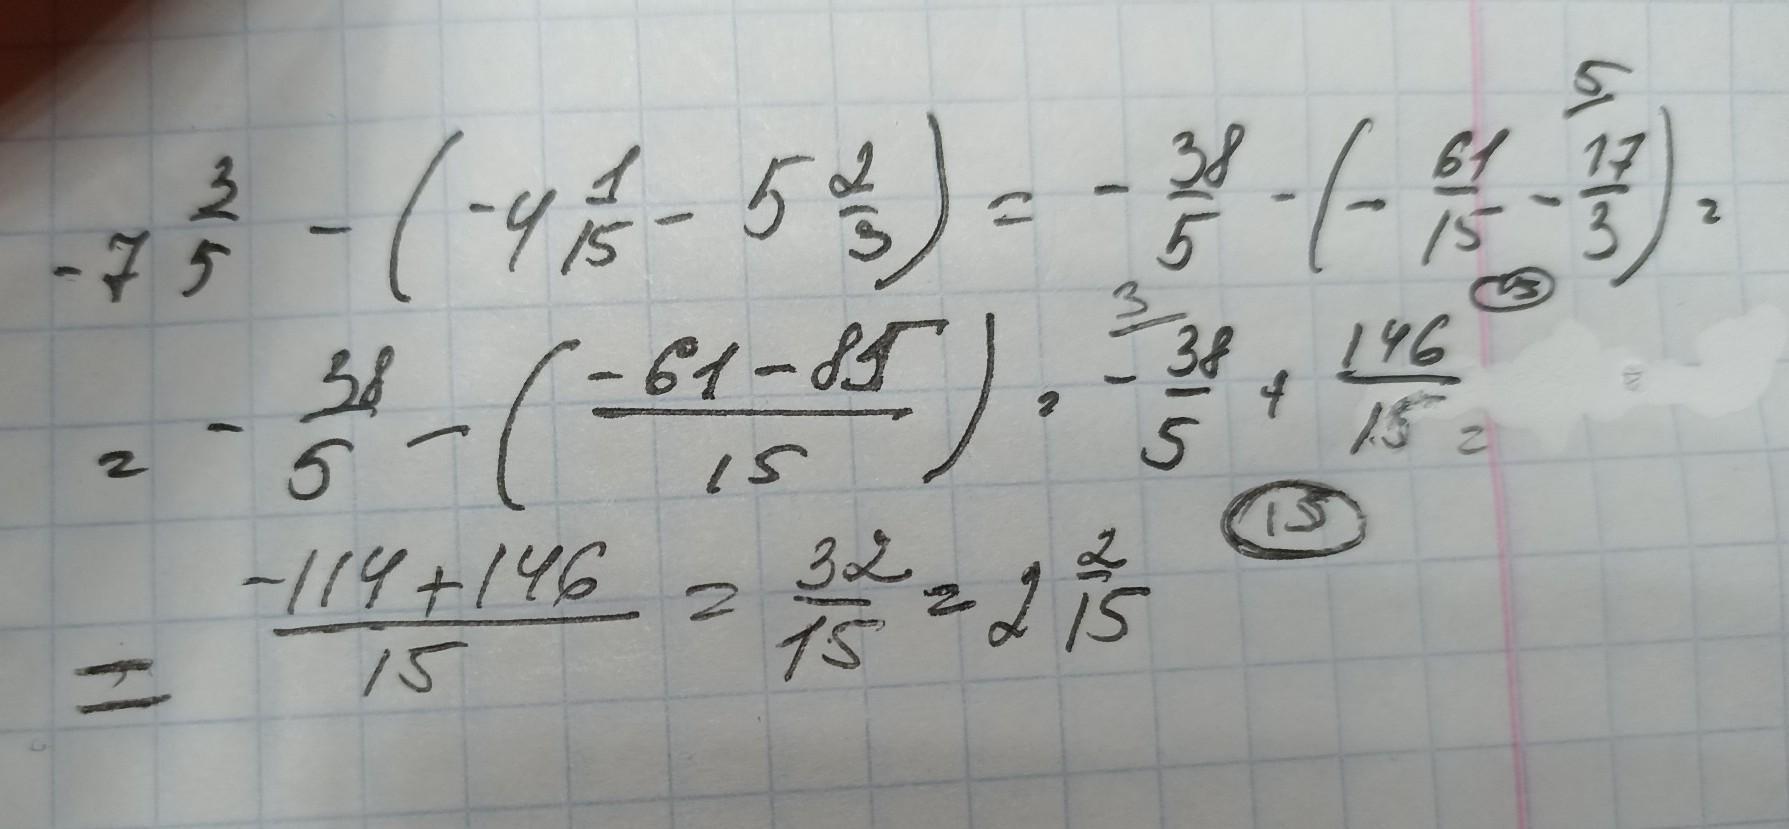 -7 3/5 - (-4 1/15 - 5 2/3) = - 38/5 - (- 61/15 - 17/3 5) =
15
= - 38/5 - ((-61-85)/15) = - 38/5 3 + 146/15 =
15
= (-114+146)/15 = 32/15 = 2 2/15